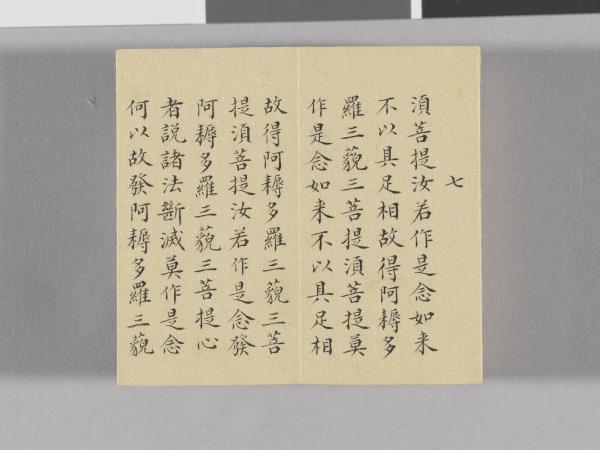 七
湏菩提汝若作是念如来
不以具足相故得阿耨多
羅三藐三菩提湏菩提莫
作是念如来不以具足相
故得阿耨多羅三藐三菩
提湏菩提汝若作是念發
阿耨多羅三藐三菩提心
者説諸法斷滅莫作是念
何以故發阿耨多羅三藐